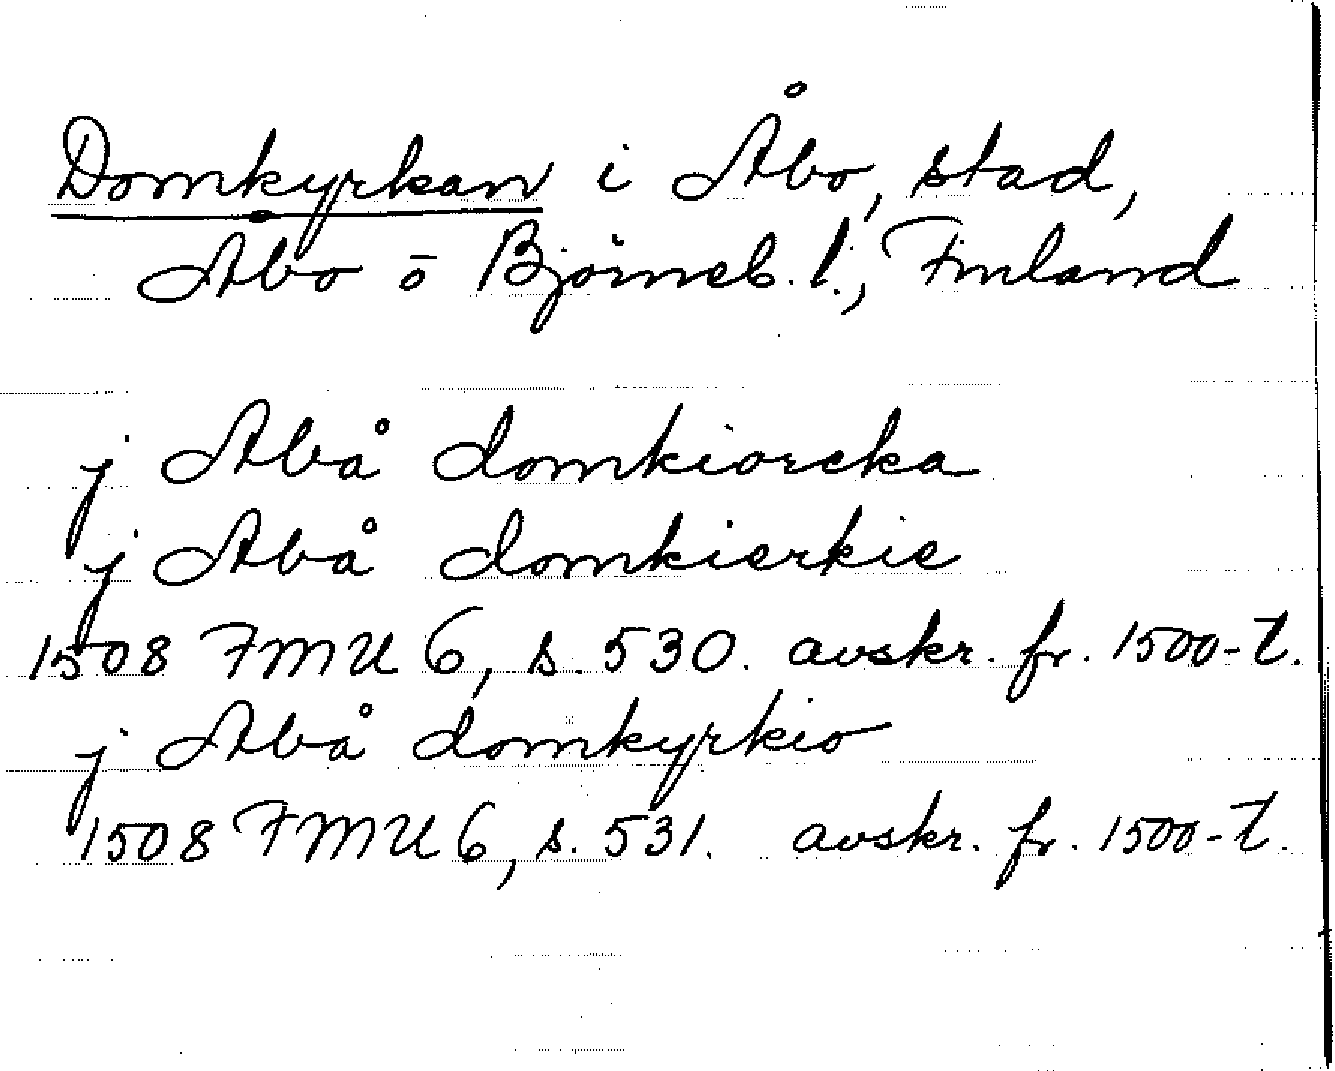 Domkyrkan i Åbo, stad,
Åbo o Björneb. l., Finland
j Abå domkiorcka
j Abå domkierkie
1508 FMU 6, s. 530. avskr. fr. 1500-t.
j Abå domkyrkio
1508 FMU 6, s. 531. avskr. fr. 1500-t.